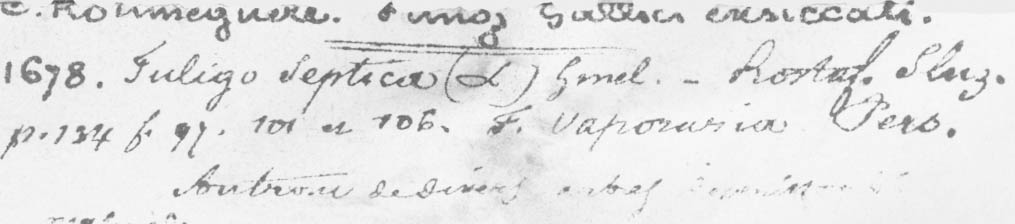 C. Roumeguère. Fungi Gallici exsiccati.
1678. Fuligo Septica (L) Gmel. - Rostaf. Sluz.
p. 134 f. 97. 101 et 106. F. Vaporaria Pers.
de divers